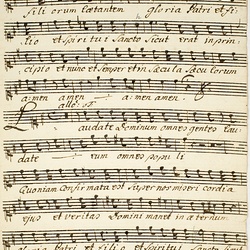 fili orum Lœtantem gloria Patri et fi:
lio et spiritui Sancto Sicut erat in prin
cipio et nunc et Semper et in Sæcula Sæculorum
a:men amen amen. a:men.
Laudate Dominum omnes gentes Lau
date rum omnes populi
Quoniam Confirmata est super nos miseri cordia
ejus et veritas Domini manet in æternum.
gloria Patri et filio et Spiritui Sancto Sicut